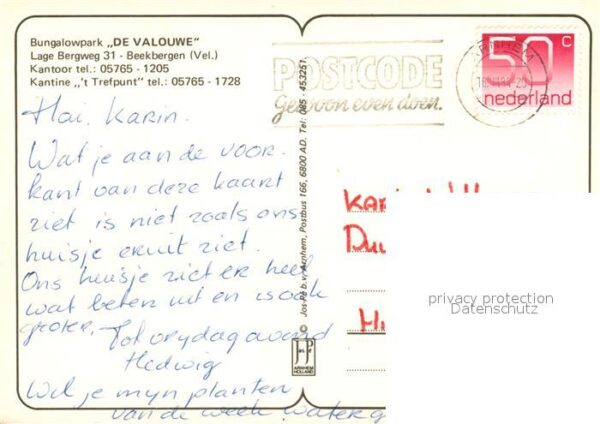 Bungalowpark „DE VALOUWE”
Lage Bergweg 31 - Beekbergen (Vel.)
Kantoor tel.: 05765 - 1205
Kantine „'t Trefpunt” tel.: 05765 - 1728
Hai Karin.
Wat je aan de voor-
kant van deze kaart
ziet is niet zoals ons
huisje eruit ziet.
Ons huisje ziet er heel
wat beter uit en is ook
groter. Tot vrijdag avond
Hedwig
Wil je mijn planten
van de week water g
© JosPé b.v. Arnhem, Postbus 166, 6800 AD. Tel: 085 - 453251
JosPé
ARNHEM
HOLLAND
POSTCODE
Gewoon even doen.
ARNHEM
50 c
nederland
Kari
Du
H
privacy protection
Datenschutz